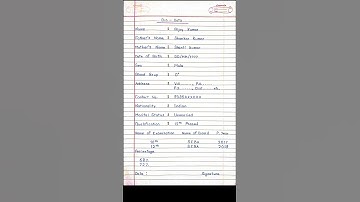 Bio - Data
Name : Ajay Kumar
Father's Name : Shankar Kumar
Mother's Name : Shanti Kumari
Date of Birth : DD/MM/YYYY
Sex : Male
Blood Group : O+
Address : Vill ......., P.o. .....,
P.s. ......, Dist .....
Contact No. :
Nationality : Indian
Marital Status : Unmarried
Qualification : 12th Passed
Name of Examination Name of Board P. Year
10th SEBA
12th SEBA 2018
Percentage
Date : Signature